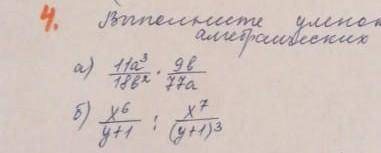 4. Выполните умнож
алгебраических
а) 11a³/18b² · 9b/77a
б) x⁶/y+1 : x⁷/(y+1)³